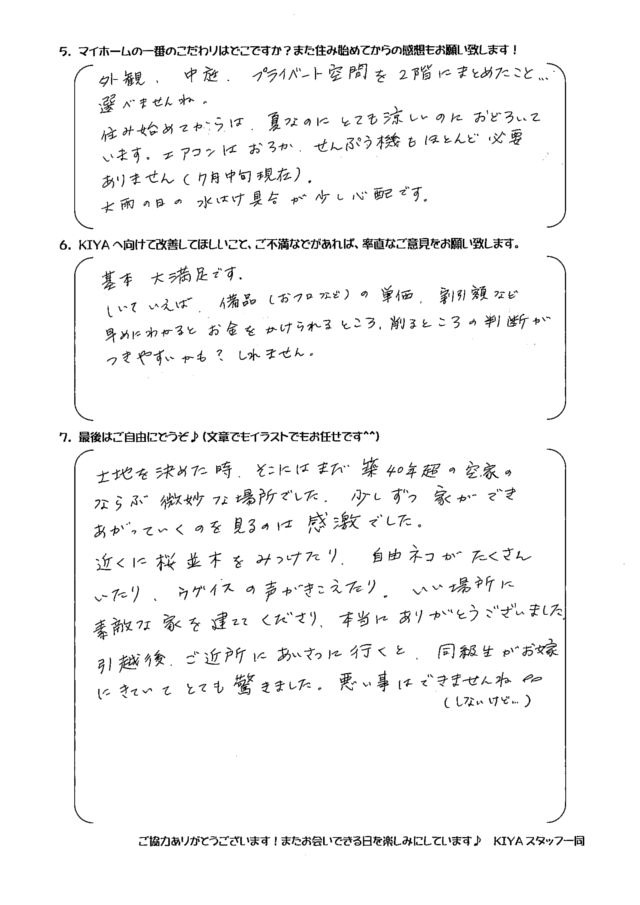 5. マイホームの一番のこだわりはどこですか？また住み始めてからの感想もお願い致します！
外観、中庭、プライベート空間を2階にまとめたこと…
選べませんね。
住み始めてからは、夏なのにとても涼しいのにおどろいて
います。エアコンはおろか、せんぷう機もほとんど必要
ありません(7月中旬現在)。
大雨の日の水はけ具合が少し心配です。
6. KIYAへ向けて改善してほしいこと、ご不満などがあれば、率直なご意見をお願い致します。
基本 大満足です。
しいていえば、備品(おフロなど)の単価、割引額など
早めにわかるとお金をかけられるところ、削るところの判断が
つきやすいかも？しれません。
7. 最後はご自由にどうぞ♪(文章でもイラストでもお任せです^^)
土地を決めた時、そこにはまだ築40年超の空家の
ならぶ微妙な場所でした。少しずつ家ができ
あがっていくのを見るのは感激でした。
近くに桜並木をみつけたり、自由ネコがたくさん
いたり、ウグイスの声がきこえたり。いい場所に
素敵な家を建ててくださり、本当にありがとうございました。
引越後、ご近所にあいさつに行くと、同級生がお嫁
にきていてとても驚きました。悪い事はできませんね^^
(しないけど…)
ご協力ありがとうございます！またお会いできる日を楽しみにしています♪ KIYAスタッフ一同